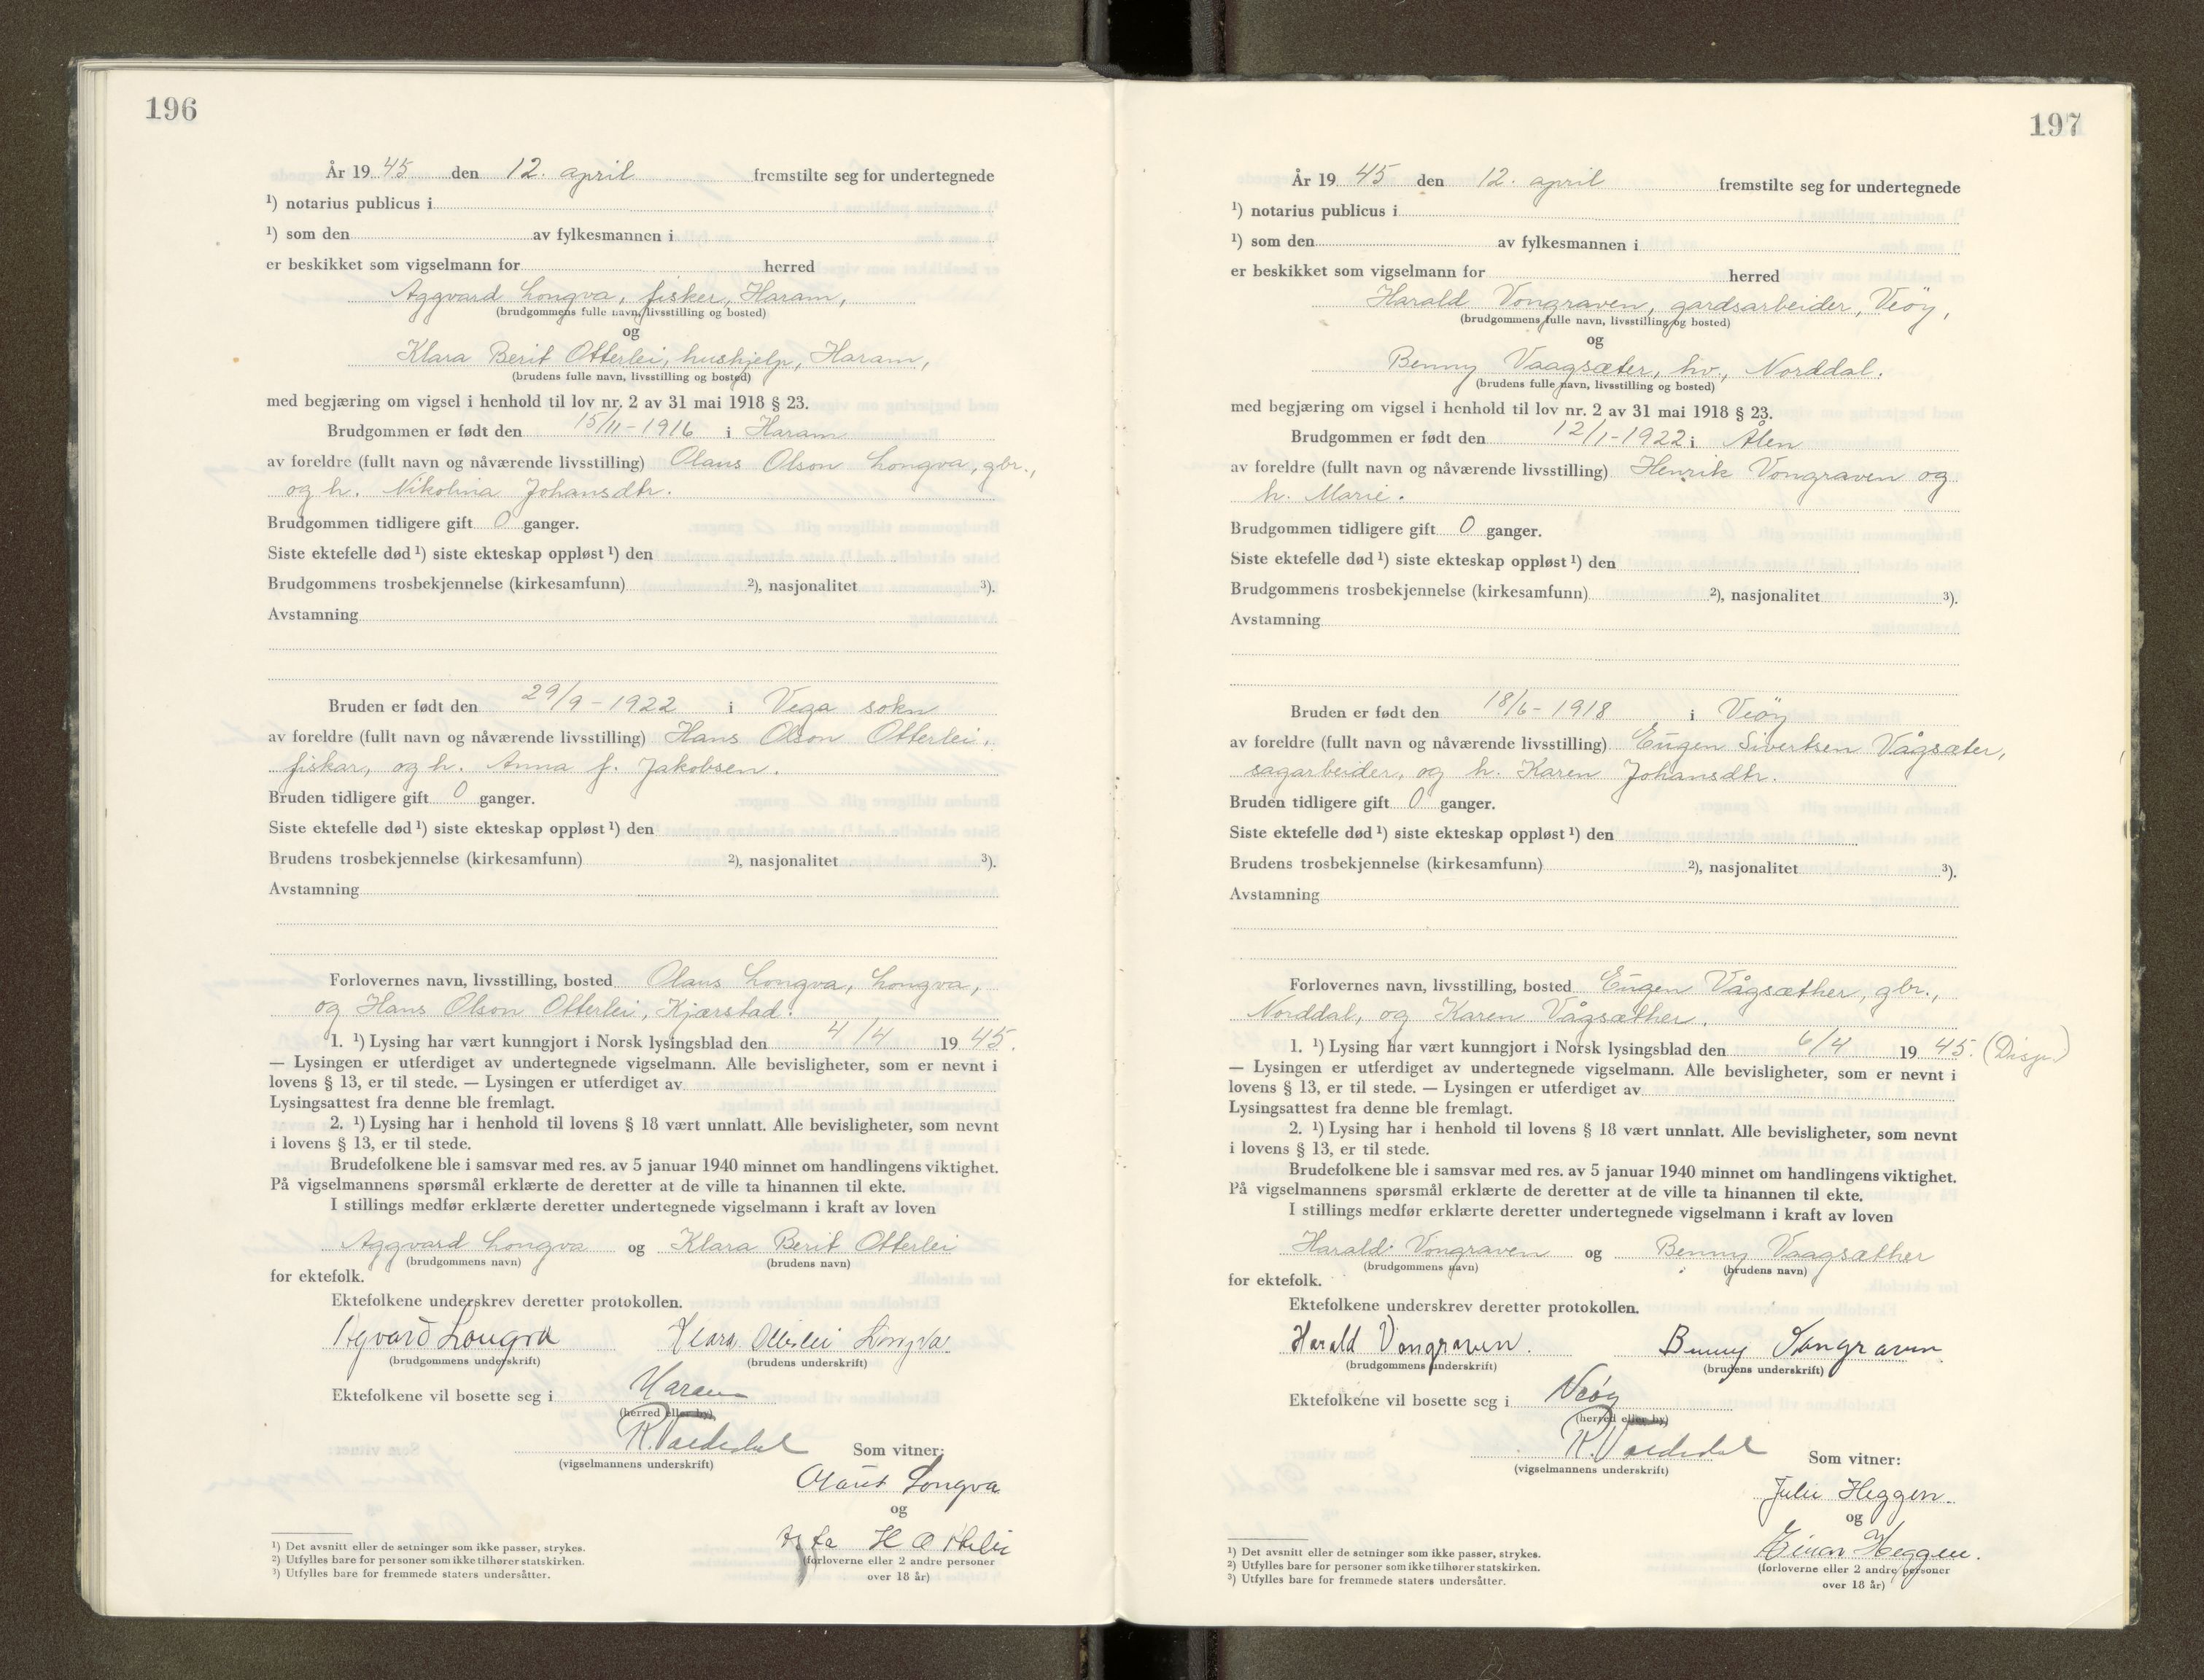 196
År 19 45 den 12. april fremstilte seg for undertegnede
¹) notarius publicus i
¹) som den av fylkesmannen i
er beskikket som vigselmann for herred
Aggvard Longva, fisker, Haram,
(brudgommens fulle navn, livsstilling og bosted)
og
Klara Berit Otterlei, hushjelp, Haram,
(brudens fulle navn, livsstilling og bosted)
med begjæring om vigsel i henhold til lov nr. 2 av 31 mai 1918 § 23.
Brudgommen er født den 15/11-1916 i Haram
av foreldre (fullt navn og nåværende livsstilling) Olaus Olson Longva, gbr.,
og h. Nikolina Johansdtr.
Brudgommen tidligere gift 0 ganger.
Siste ektefelle død ¹) siste ekteskap oppløst ¹) den
Brudgommens trosbekjennelse (kirkesamfunn) ²), nasjonalitet ³).
Avstamning
Bruden er født den 29/9-1922 i Vega sokn
av foreldre (fullt navn og nåværende livsstilling) Hans Olson Otterlei,
fiskar, og h. Anna f. Jakobsen.
Bruden tidligere gift 0 ganger.
Siste ektefelle død ¹) siste ekteskap oppløst ¹) den
Brudens trosbekjennelse (kirkesamfunn) ²), nasjonalitet ³).
Avstamning
Forlovernes navn, livsstilling, bosted Olaus Longva, Longva,
og Hans Olson Otterlei, Kjærstad.
1. ¹) Lysing har vært kunngjort i Norsk lysingsblad den 4/4 19 45.
— Lysingen er utferdiget av undertegnede vigselmann. Alle bevisligheter, som er nevnt i
lovens § 13, er til stede. — Lysingen er utferdiget av
Lysingsattest fra denne ble fremlagt.
2. ¹) Lysing har i henhold til lovens § 18 vært unnlatt. Alle bevisligheter, som nevnt
i lovens § 13, er til stede.
Brudefolkene ble i samsvar med res. av 5 januar 1940 minnet om handlingens viktighet.
På vigselmannens spørsmål erklærte de deretter at de ville ta hinannen til ekte.
I stillings medfør erklærte deretter undertegnede vigselmann i kraft av loven
Aggvard Longva og Klara Berit Otterlei
(brudgommens navn) (brudens navn)
for ektefolk.
Ektefolkene underskrev deretter protokollen.
Agvard Longva Klara Otterlei Longva
(brudgommens underskrift) (brudens underskrift)
Ektefolkene vil bosette seg i Haram
(herred eller by)
Som vitner:
(vigselmannens underskrift)
Longva
og
(forloverne eller 2 andre personer
over 18 år)
¹) Det avsnitt eller de setninger som ikke passer, strykes.
²) Utfylles bare for personer som ikke tilhører statskirken.
³) Utfylles bare for fremmede staters undersåtter.
197
År 19 45 den 12. april fremstilte seg for undertegnede
¹) notarius publicus i
¹) som den av fylkesmannen i
er beskikket som vigselmann for herred
Harald Vongraven, gardsarbeider, Veøy,
(brudgommens fulle navn, livsstilling og bosted)
og
Benny Vaagsæter, hv., Norddal.
(brudens fulle navn, livsstilling og bosted)
med begjæring om vigsel i henhold til lov nr. 2 av 31 mai 1918 § 23.
Brudgommen er født den 12/1-1922 i Ålen
av foreldre (fullt navn og nåværende livsstilling) Henrik Vongraven og
h. Marie.
Brudgommen tidligere gift 0 ganger.
Siste ektefelle død ¹) siste ekteskap oppløst ¹) den
Brudgommens trosbekjennelse (kirkesamfunn) ²), nasjonalitet ³).
Avstamning
Bruden er født den 18/6-1918 i Veöy
av foreldre (fullt navn og nåværende livsstilling) Eugen Sivertsen Vågsæter,
sagarbeider, og h. Karen Johansdtr.
Bruden tidligere gift 0 ganger.
Siste ektefelle død ¹) siste ekteskap oppløst ¹) den
Brudens trosbekjennelse (kirkesamfunn) ²), nasjonalitet ³).
Avstamning
Forlovernes navn, livsstilling, bosted Eugen Vågsæther, gbr.,
Norddal, og Karen Vågsæther.
1. ¹) Lysing har vært kunngjort i Norsk lysingsblad den 6/4 19 45. (Disp.)
— Lysingen er utferdiget av undertegnede vigselmann. Alle bevisligheter, som er nevnt i
lovens § 13, er til stede. — Lysingen er utferdiget av
Lysingsattest fra denne ble fremlagt.
2. ¹) Lysing har i henhold til lovens § 18 vært unnlatt. Alle bevisligheter, som nevnt
i lovens § 13, er til stede.
Brudefolkene ble i samsvar med res. av 5 januar 1940 minnet om handlingens viktighet.
På vigselmannens spørsmål erklærte de deretter at de ville ta hinannen til ekte.
I stillings medfør erklærte deretter undertegnede vigselmann i kraft av loven
Harald Vongraven og Benny Vaagsæther
(brudgommens navn) (brudens navn)
for ektefolk.
Ektefolkene underskrev deretter protokollen.
Harald Vongraven. Benny Vongraven
(brudgommens underskrift) (brudens underskrift)
Ektefolkene vil bosette seg i Veøy
(herred eller by)
Som vitner:
(vigselmannens underskrift)
Julie Heggen.
og
Einar Heggen.
(forloverne eller 2 andre personer
over 18 år)
¹) Det avsnitt eller de setninger som ikke passer, strykes.
²) Utfylles bare for personer som ikke tilhører statskirken.
³) Utfylles bare for fremmede staters undersåtter.